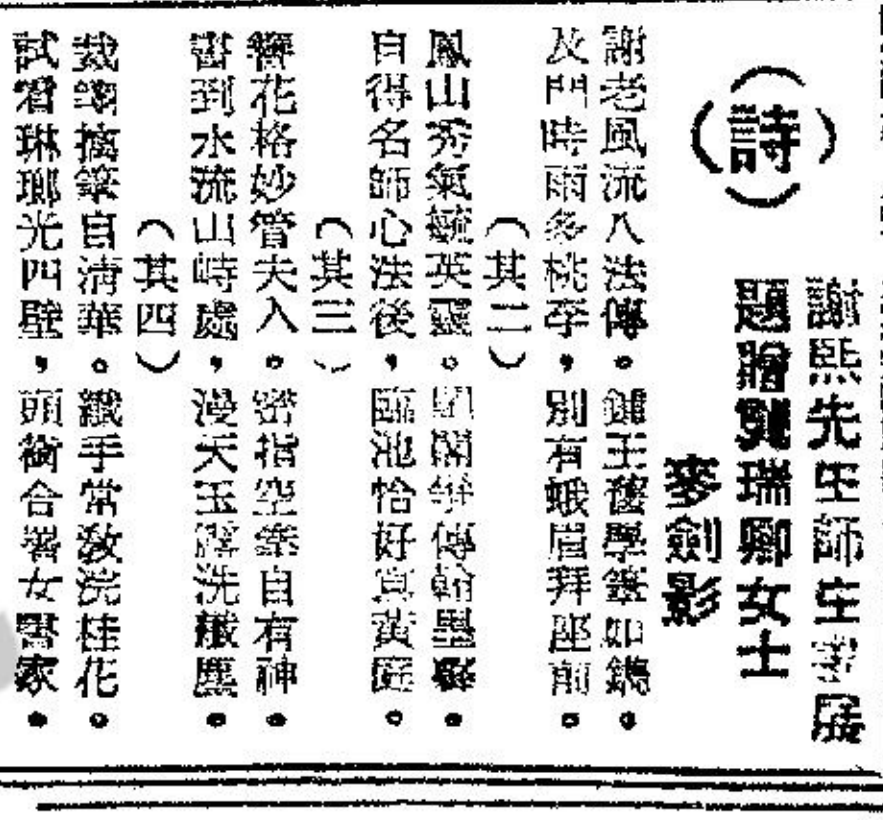 （詩）
謝熙先生師生書展
題贈龔瑞卿女士
麥劍影
謝老風流八法傳。鍾王舊學鐵如鐫。
及門時雨多桃李，別有蛾眉拜座前。
（其二）
鳳山秀氣毓英靈。閨閣爭傳翰墨馨。
自得名師心法後，臨池恰好寫黃庭。
（其三）
簪花格妙管夫人。密指空綮自有神。
書到水流山峙處，漫天玉露洗纖塵。
（其四）
裁翊擒箋自清華。纖手常教浣桂花。
試看琳瑯光四壁，頭銜合署女書家。